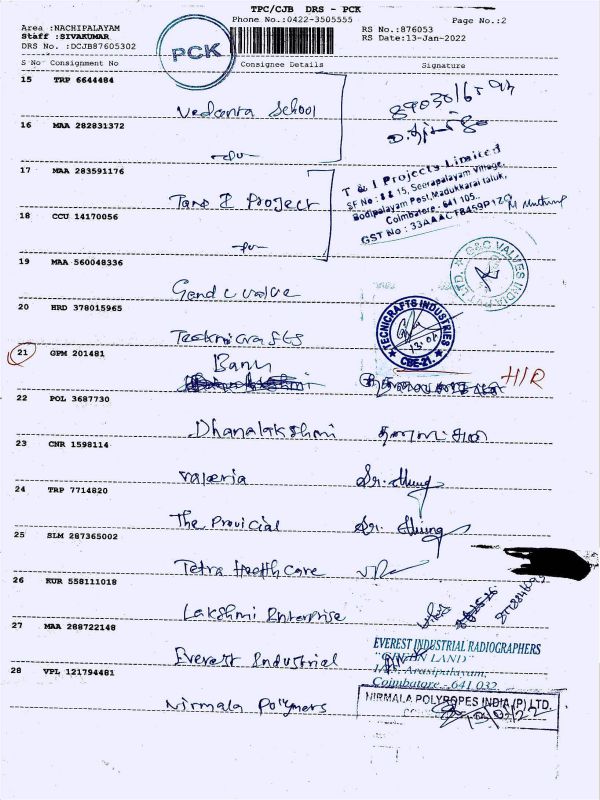 TPC/CJB DRS - PCK
Phone No.:0422-3505555 Page No.:2
Area :NACHIPALAYAM
Staff :SIVAKUMAR
DRS No. :DCJB87605302
RS No.:876053
RS Date:13-Jan-2022
PCK
S No Consignment No Consignee Details Signature
15 TRP 6644484
Vedanta School
16 MAA 282831372
17 MAA 283591176
Tand I Project
T & I Projects Limited
SF No : & 15, Seerapalayam Village,
Bodipalayam Post, Madukkarai taluk,
Coimbatore - 641 105.
GST No : 33AAACT8459P1ZQ
18 CCU 14170056
19 MAA 560048336
Gand c valve
G&C VALVES INDIA PVT LTD.
20 HRD 378015965
Tecknicrafts
TECHICRAFTS INDUSTRIES
CBE-21.
21 GPM 201481
Banu
H/R
22 POL 3687730
Dhanalakshmi
23 CNR 1598114
Valeria
24 TRP 7714820
The Provicial
25 SLM 287365002
Tetra Health Care
26 KUR 558111018
Lakshmi Enterprise
27 MAA 288722148
Everest Industrial
EVEREST INDUSTRIAL RADIOGRAPHERS
LAND"
Arasipalayam,
Coimbatore - 641 032.
28 VPL 121794481
Nirmala Polymers
NIRMALA POLYROPES INDIA (P) LTD.